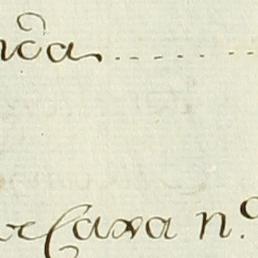 nc̃a
Caxa n.º